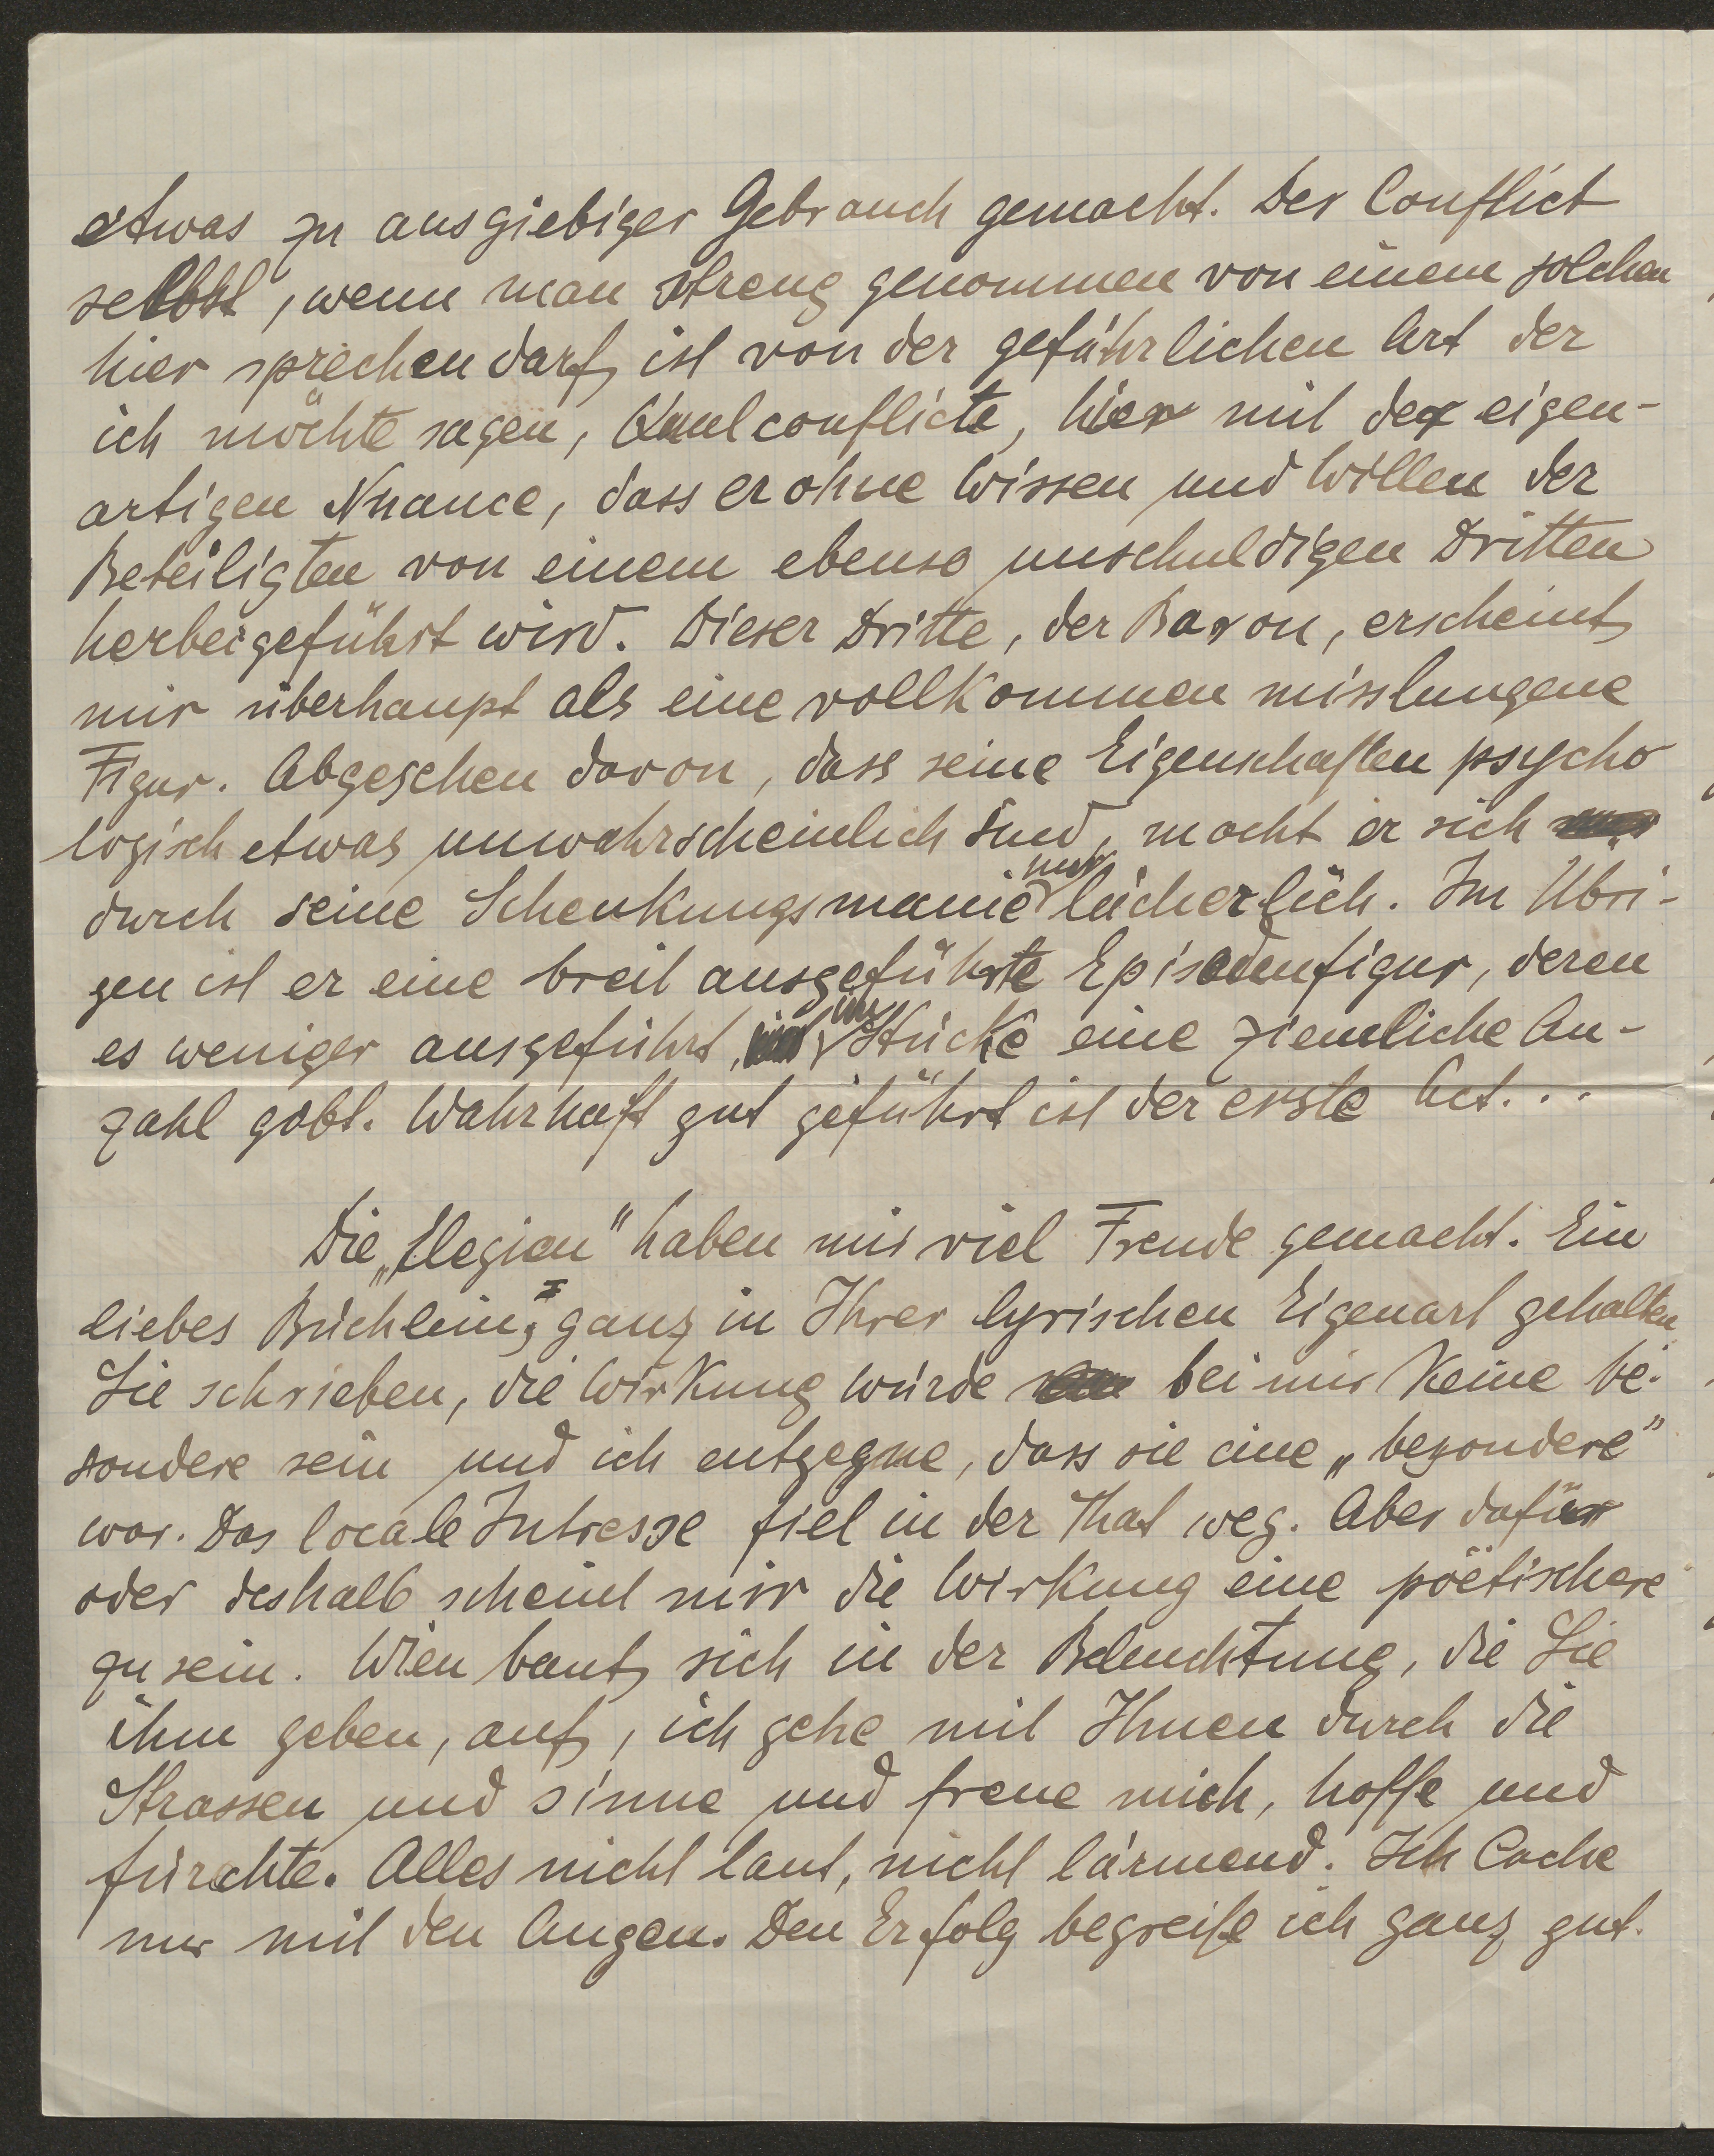 etwas zu ausgiebiger Gebrauch gemacht. Der Conflict
selbst, wenn man streng genommen von einem solchen
hier sprechen darf, ist von der gefährlichen Art der
ich möchte sagen, Qualconflicte, hier mit der eigen-
artigen Nuance, dass er ohne Wissen und Willen der
Beteiligten von einem ebenso unschuldigen Dritten
herbeigeführt wird. Dieser Dritte, der Baron, erscheint
mir überhaupt als eine vollkommen misslungene
Figur. Abgesehen davon, dass seine Eigenschaften psycho
logisch etwas unwahrscheinlich sind, macht er sich
durch seine Schenkungsmanie nur lächerlich. Im Übri-
gen ist er eine breit ausgeführte Episodenfigur, deren
es weniger ausgeführt, im Stücke eine ziemliche An-
zahl gibt. Wahrhaft gut geführt ist der erste Act...
Die „Elegien" haben mir viel Freude gemacht. Ein
liebes Büchlein, ganz in Ihrer lyrischen Eigenart gehalten
Sie schrieben, die Wirkung würde bei mir keine be-
sondere sein und ich entgegne, dass sie eine „besondere"
war. Das locale Intresse fiel in der That weg. Aber dafür
oder deshalb scheint mir die Wirkung eine poëtischere
zu sein. Wien baut sich in der Beleuchtung, die Sie
ihm geben, auf, ich gehe mit Ihnen durch die
Strassen und sinne und freue mich, hoffe und
fürchte. Alles nicht laut, nicht lärmend. Ich lache
nur mit den Augen. Den Erfolg begreife ich ganz gut.